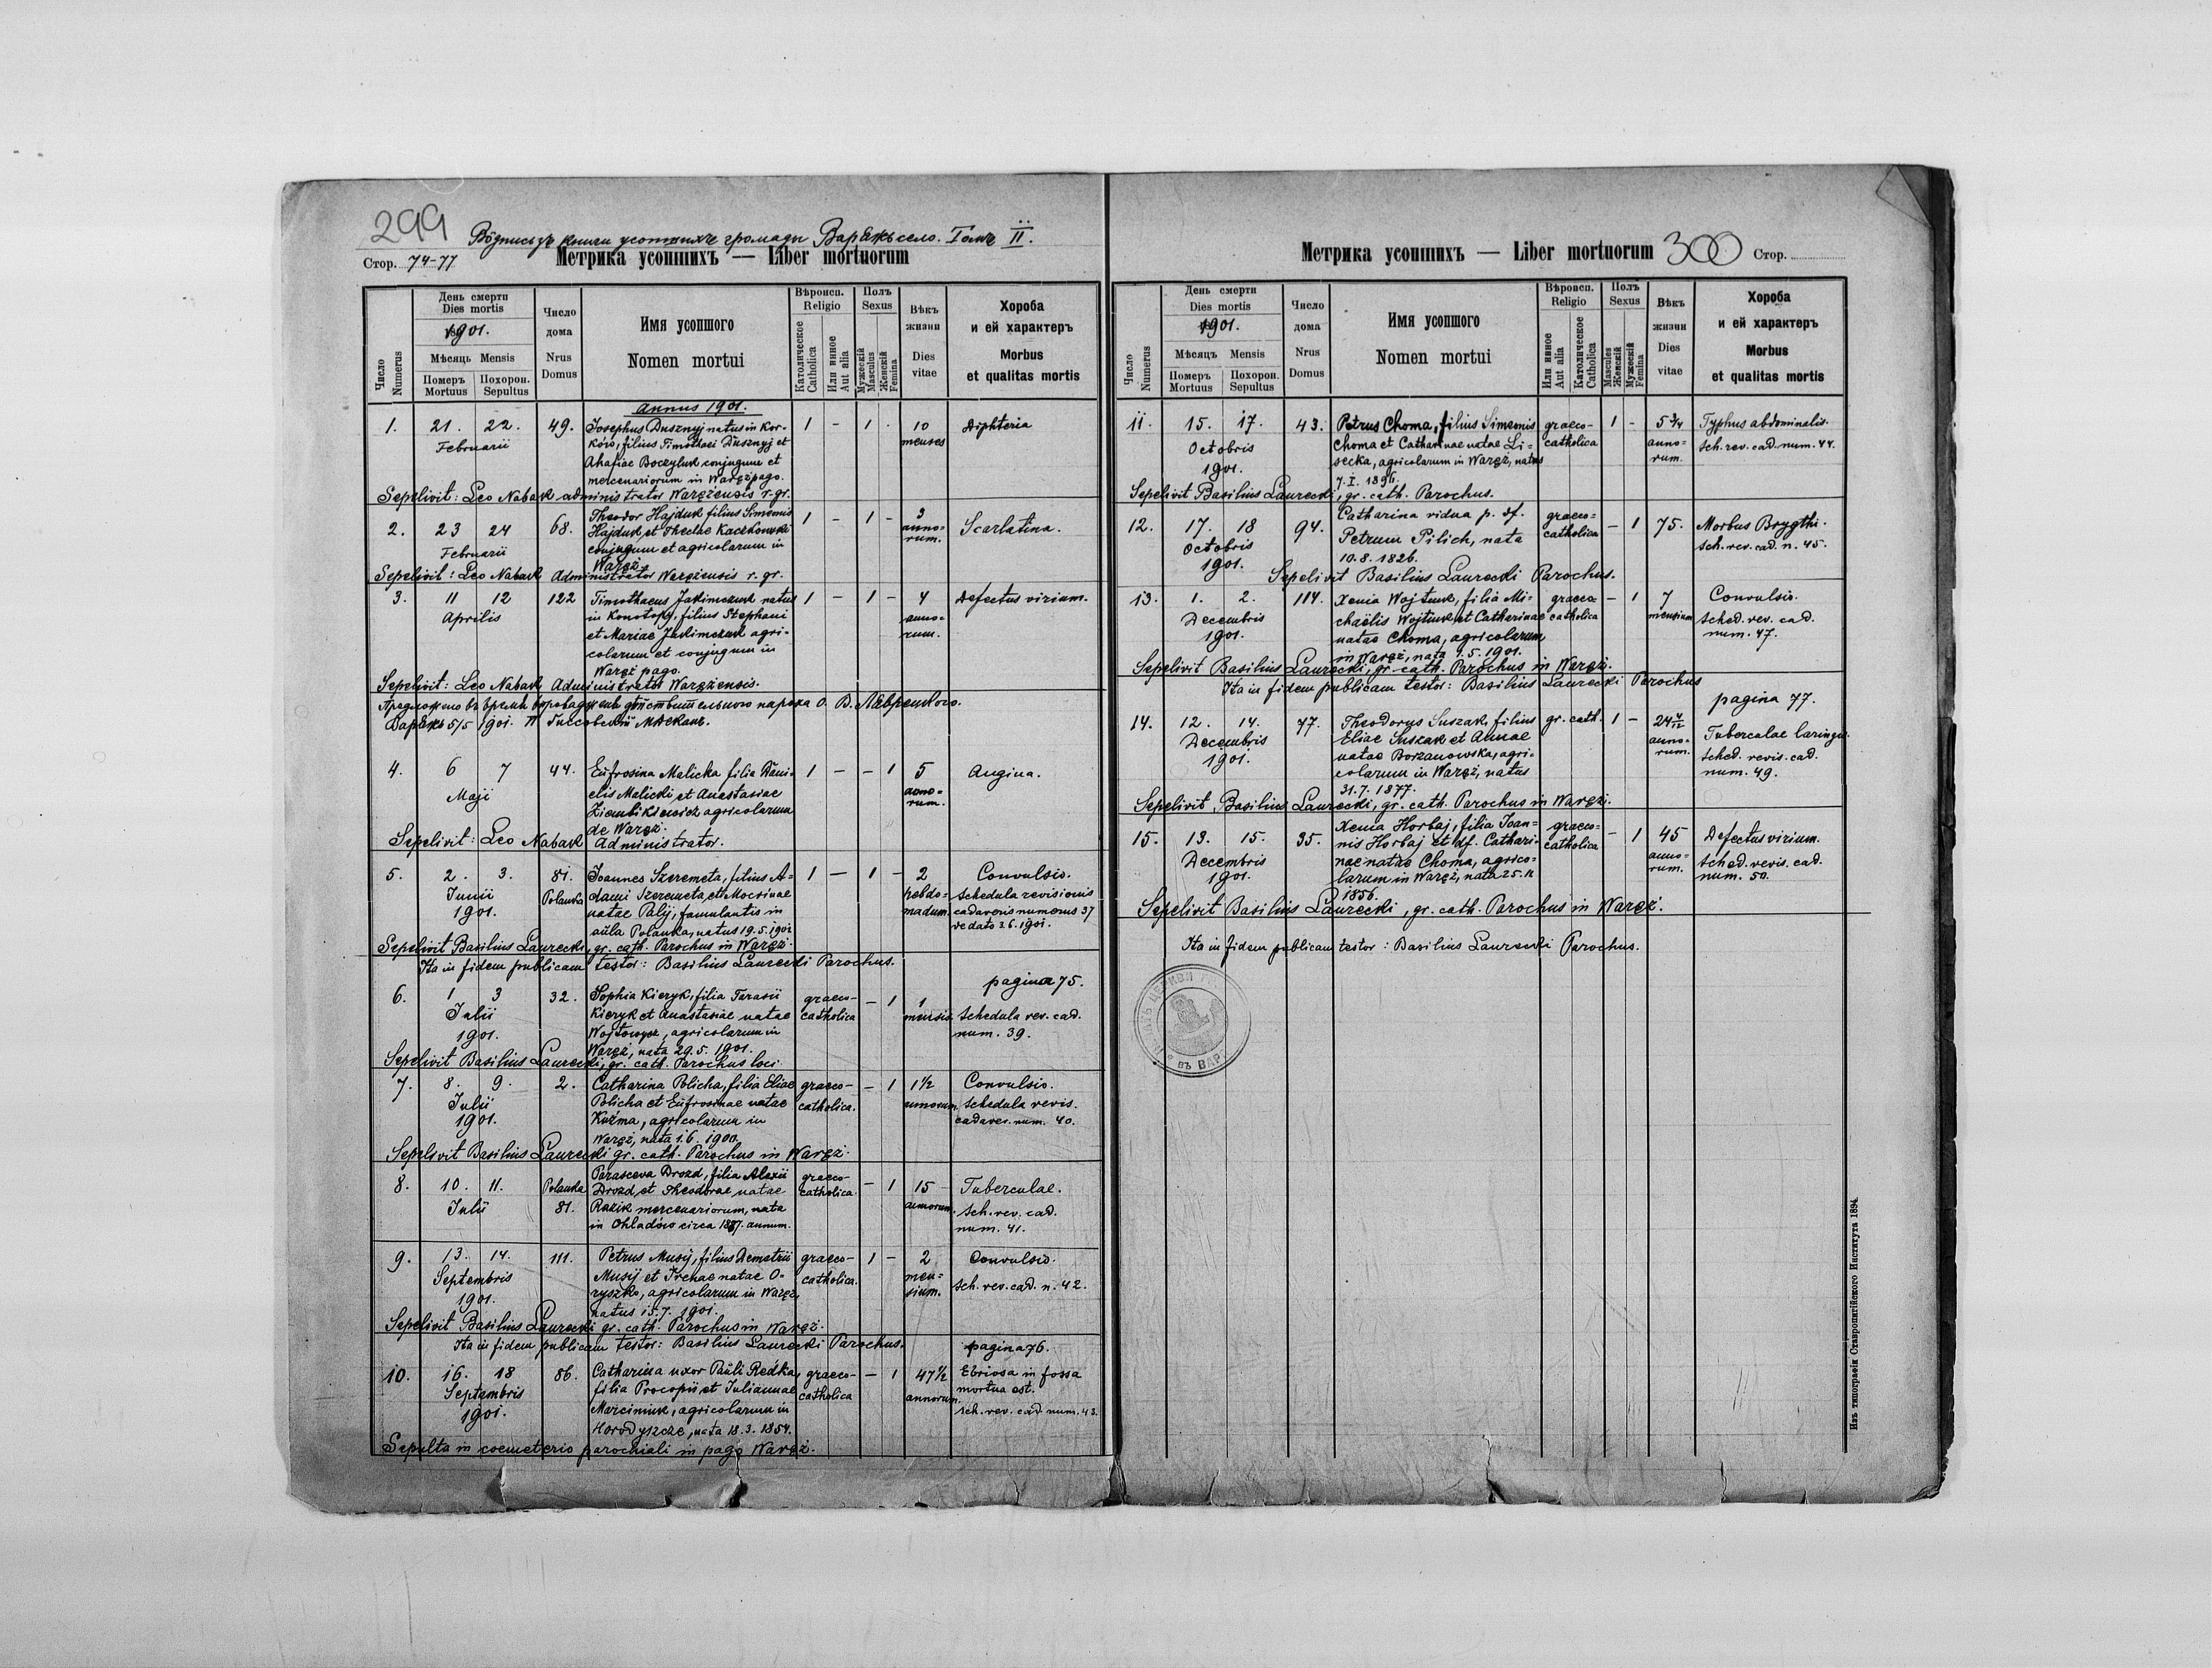 299
Вôдписъ зъ книги усопшихъ громады Варяжъ село. Томъ II.
Стор. 74-77
Метрика усопшихъ — Liber mortuorum
Число
Numerus
День смерти
Dies mortis
1901.
Мѣсяць Mensis
Померъ
Mortuus
Похорон.
Sepultus
Число
дома
Nrus
Domus
Имя усопшого
Nomen mortui
Вѣроисп.
Religio
Католическое
Catholica
Или инное
Aut alia
Полъ
Sexus
Мужескій
Masculus
Женскій
Femina
Вѣкъ
жизни
Dies
vitae
Хороба
и ей характеръ
Morbus
et qualitas mortis
Annus 1901.
1. 21. 22. 49. Josephus Dusznyj natus in Kor- 1 - 1 - 10 Diphteria
Februarii ków, filius Timothaei Dusznyj et menses
Ahafiae Boczyluk conjugum et
mercenariorum in Waręż pago.
Sepelivit: Leo Nabak administrator Warężensis r. gr.
2. 23 24 68. Theodor Hajduk filius Simeonis 1 - 1 - 3 Scarlatina.
Februarii Hajduk, et Theclae Kaczkowski anno-
conjugum et agricolarum in rum.
Waręż.
Sepelivit: Leo Nabak Administrator Warężensis r. gr.
3. 11 12 122 Timothaeus Jakimczuk natus 1 - 1 - 4 Defectus virium.
Aprilis in Konotopy, filius Stephani anno-
et Mariae Jakimczuk agri- rum.
colarum et conjugum in
Waręż pago.
Sepelivit: Leo Nabak Administrator Warężensis.
Предложено въ время впроваджень дѣйствительного пароха о. В. Лаврецкого.
Варяжъ 5/5 1901.
4. 6 7 44. Eufrosina Malicka filia Dani- 1 - - 1 5 Angina.
Maji elis Malicki et Anastasiae anno-
Ziembikiewicz agricolarum rum.
de Waręż.
Sepelivit: Leo Nabak Administrator.
5. 2. 3. 81. Joannes Szeremeta, filius A- 1 - 1 - 2 Convulsio.
Junii Polanka dami Szeremeta, et Mocrinae hebdo- Schedula revisionis
1901. natae Palij, famulantis in madum. cadaveris numerus 37
aula Polanka, natus 19.5.1901 de dato 3.6.1901.
Sepelivit Basilius Laurecki, gr. cath. Parochus in Waręż.
Ita in fidem publicam testor: Basilius Laurecki Parochus.
pagina 75.
6. 1 3 32. Sophia Kieryk, filia Tarasii graeco- - 1 1
Julii Kieryk et Anastasiae natae catholica mensis. Schedula rev. cad.
1901. Wojtowycz, agricolarum in num. 39.
Waręż, nata 29.5.1901.
Sepelivit Basilius Laurecki, gr. cath. Parochus loci.
7. 8. 9. 2. Catharina Policha, filia Eliae graeco- - 1 1½ Convulsio.
Julii Policha et Eufrosinae natae catholica. annorum. Schedula revis.
1901. Kuźma, agricolarum in cadaver. num. 40.
Waręż, nata 1.6.1900.
Sepelivit Basilius Laurecki gr. cath. Parochus in Waręż.
8. 10. 11. Polanka Parasceva Drozd, filia Alexii graeco- - 1 15 Tuberculae.
Julii 81. Drozd, et Theodorae natae catholica. annorum. Sch. rev. cad.
Razik mercenariorum, nata num. 41.
in Ohladów circa 1887. annum.
9. 13. 14. 111. Petrus Musij, filius Demetrii graeco- 1 - 2 Convulsio.
Septembris Musij et Irenae natae O- catholica. men- Sch. rev. cad. n. 42.
1901. ryszko, agricolarum in Waręż, sium.
natus 15.7.1901.
Sepelivit Basilius Laurecki gr. cath. Parochus in Waręż.
Ita in fidem publicam testor: Basilius Laurecki Parochus.
pagina 76.
10. 16. 18 86. Catharina uxor Pauli Redka, graeco- - 1 47½ Ebriosa in fossa
Septembris filia Procopii et Iuliannae catholica annorum. mortua est.
1901. Marciniuk, agricolarum in Sch. rev. cad. num. 43.
Horodyszcze, nata 18.3.1854.
Sepulta in coemeterio parochiali in pago Waręż.
Метрика усопшихъ — Liber mortuorum
300
Стор.
Число
Numerus
День смерти
Dies mortis
1901.
Мѣсяцъ Mensis
Померъ
Mortuus
Похорон.
Sepultus
Число
дома
Nrus
Domus
Имя усопшого
Nomen mortui
Вѣроисп.
Religio
Или инное
Aut alia
Католическое
Catholica
Полъ
Sexus
Masculus
Женскій
Мужескій
Femina
Вѣкъ
жизни
Dies
vitae
Хороба
и ей характеръ
Morbus
et qualitas mortis
11. 15. 17. 43. Petrus Choma, filius Simeonis graeco- 1 - 5¾ Typhus abdominalis.
Octobris Choma et Catharinae natae Li- catholica anno- Sch. rev. cad. num. 44.
1901. secka, agricolarum in Waręż, natus rum.
7.I.1896.
Sepelivit Basilius Laurecki, gr. cath. Parochus.
12. 17. 18 94. Catharina vidua p. df. graeco- - 1 75. Morbus Brygthi.
Octobris Petrum Pilich, nata catholica Sch. rev. cad. n. 45.
1901. 10.8.1826.
Sepelivit Basilius Laurecki Parochus.
13. 1. 2. 114. Xenia Wojtiuk, filia Mi- graeco- - 1 7 Convulsio.
Decembris chaëlis Wojtiuk et Catharinae catholica mensium Sched. rev. cad.
1901. natae Choma, agricolarum num. 47.
in Waręż, nata 1.5.1901.
Sepelivit Basilius Laurecki, gr. cath. Parochus in Waręż.
Ita in fidem publicam testor: Basilius Laurecki Parochus
pagina 77.
14. 12. 14. 77. Theodorus Suszak, filius gr. cath. 1 - 24 4/12 Tuberculae laringis.
Decembris Eliae Suszak et Annae anno- Sched. revis. cad.
1901. natae Borzanowska, agri- rum. num. 49.
colarum in Waręż, natus
31.7.1877.
Sepelivit Basilius Laurecki, gr. cath. Parochus in Waręż.
15. 13. 15. 35. Xenia Horbaj, filia Joan- graeco- - 1 45 Defectus virium.
Decembris nis Horbaj et df. Cathari- catholica anno- Sched. revis. cad.
1901. nae natae Choma, agrico- rum. num. 50.
larum in Waręż, nata 25.11
1856.
Sepelivit Basilius Laurecki, gr. cath. Parochus in Waręż.
Ita in fidem publicam testor: Basilius Laurecki Parochus.
ЦЕРКВИ
ВЪ ВАР
Изъ типографіи Ставропигійского Института 1894.